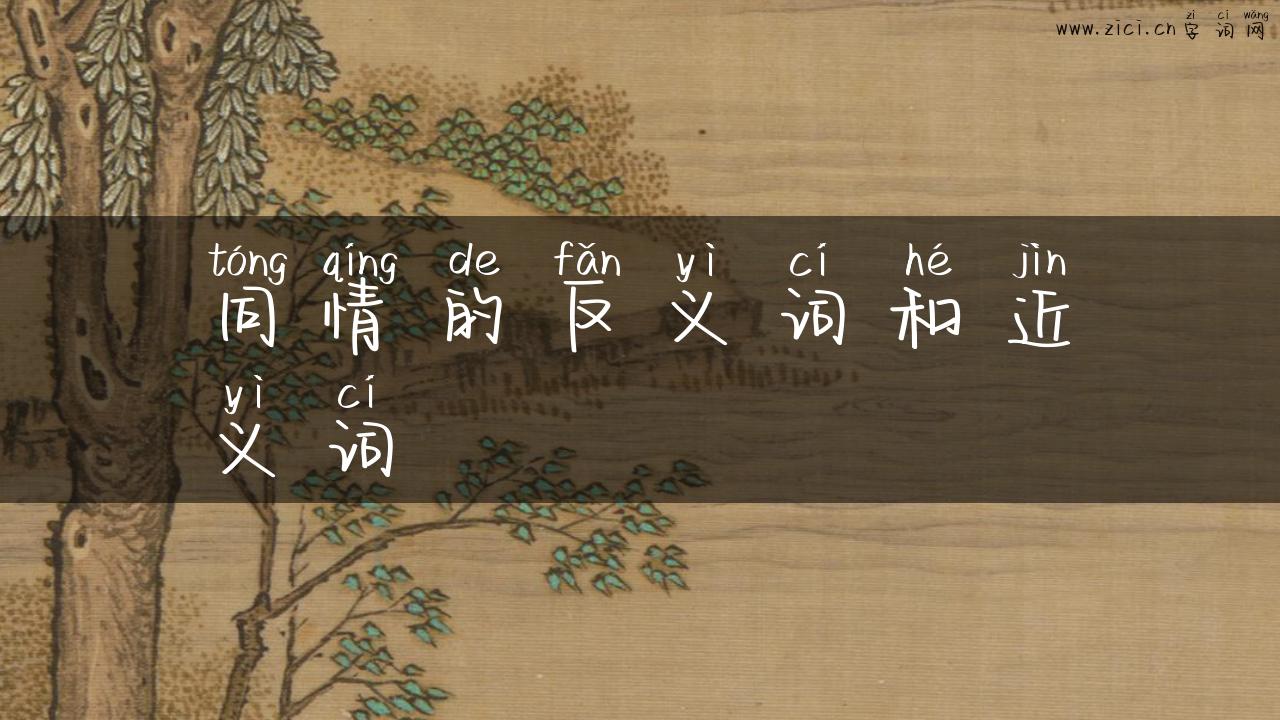 zì cí wǎng
www.zici.cn 字词网
tóng qíng de fǎn yì cí hé jìn
同情的反义词和近
yì cí
义词